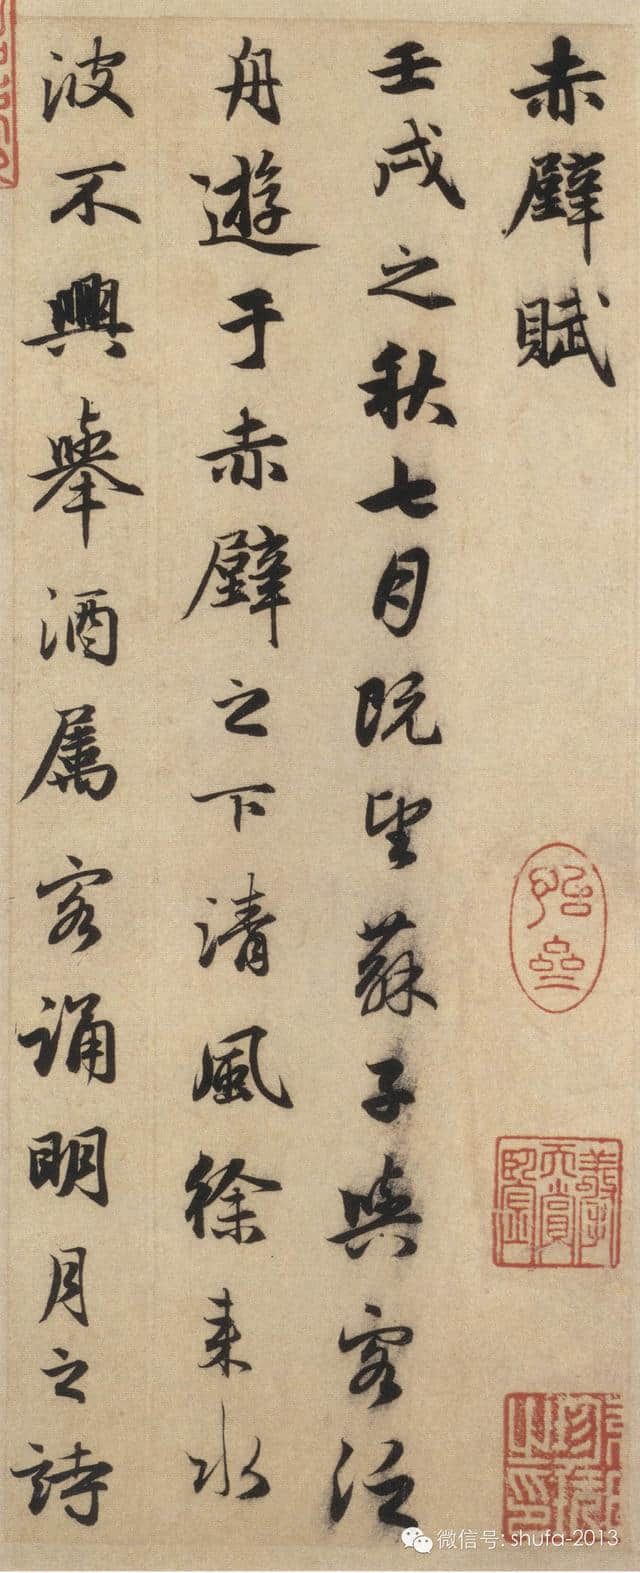 赤壁賦
壬戌之秋七月既望蘇子與客泛
舟遊于赤壁之下清風徐来水
波不興舉酒属客誦明月之詩
微信号: shufa-2013